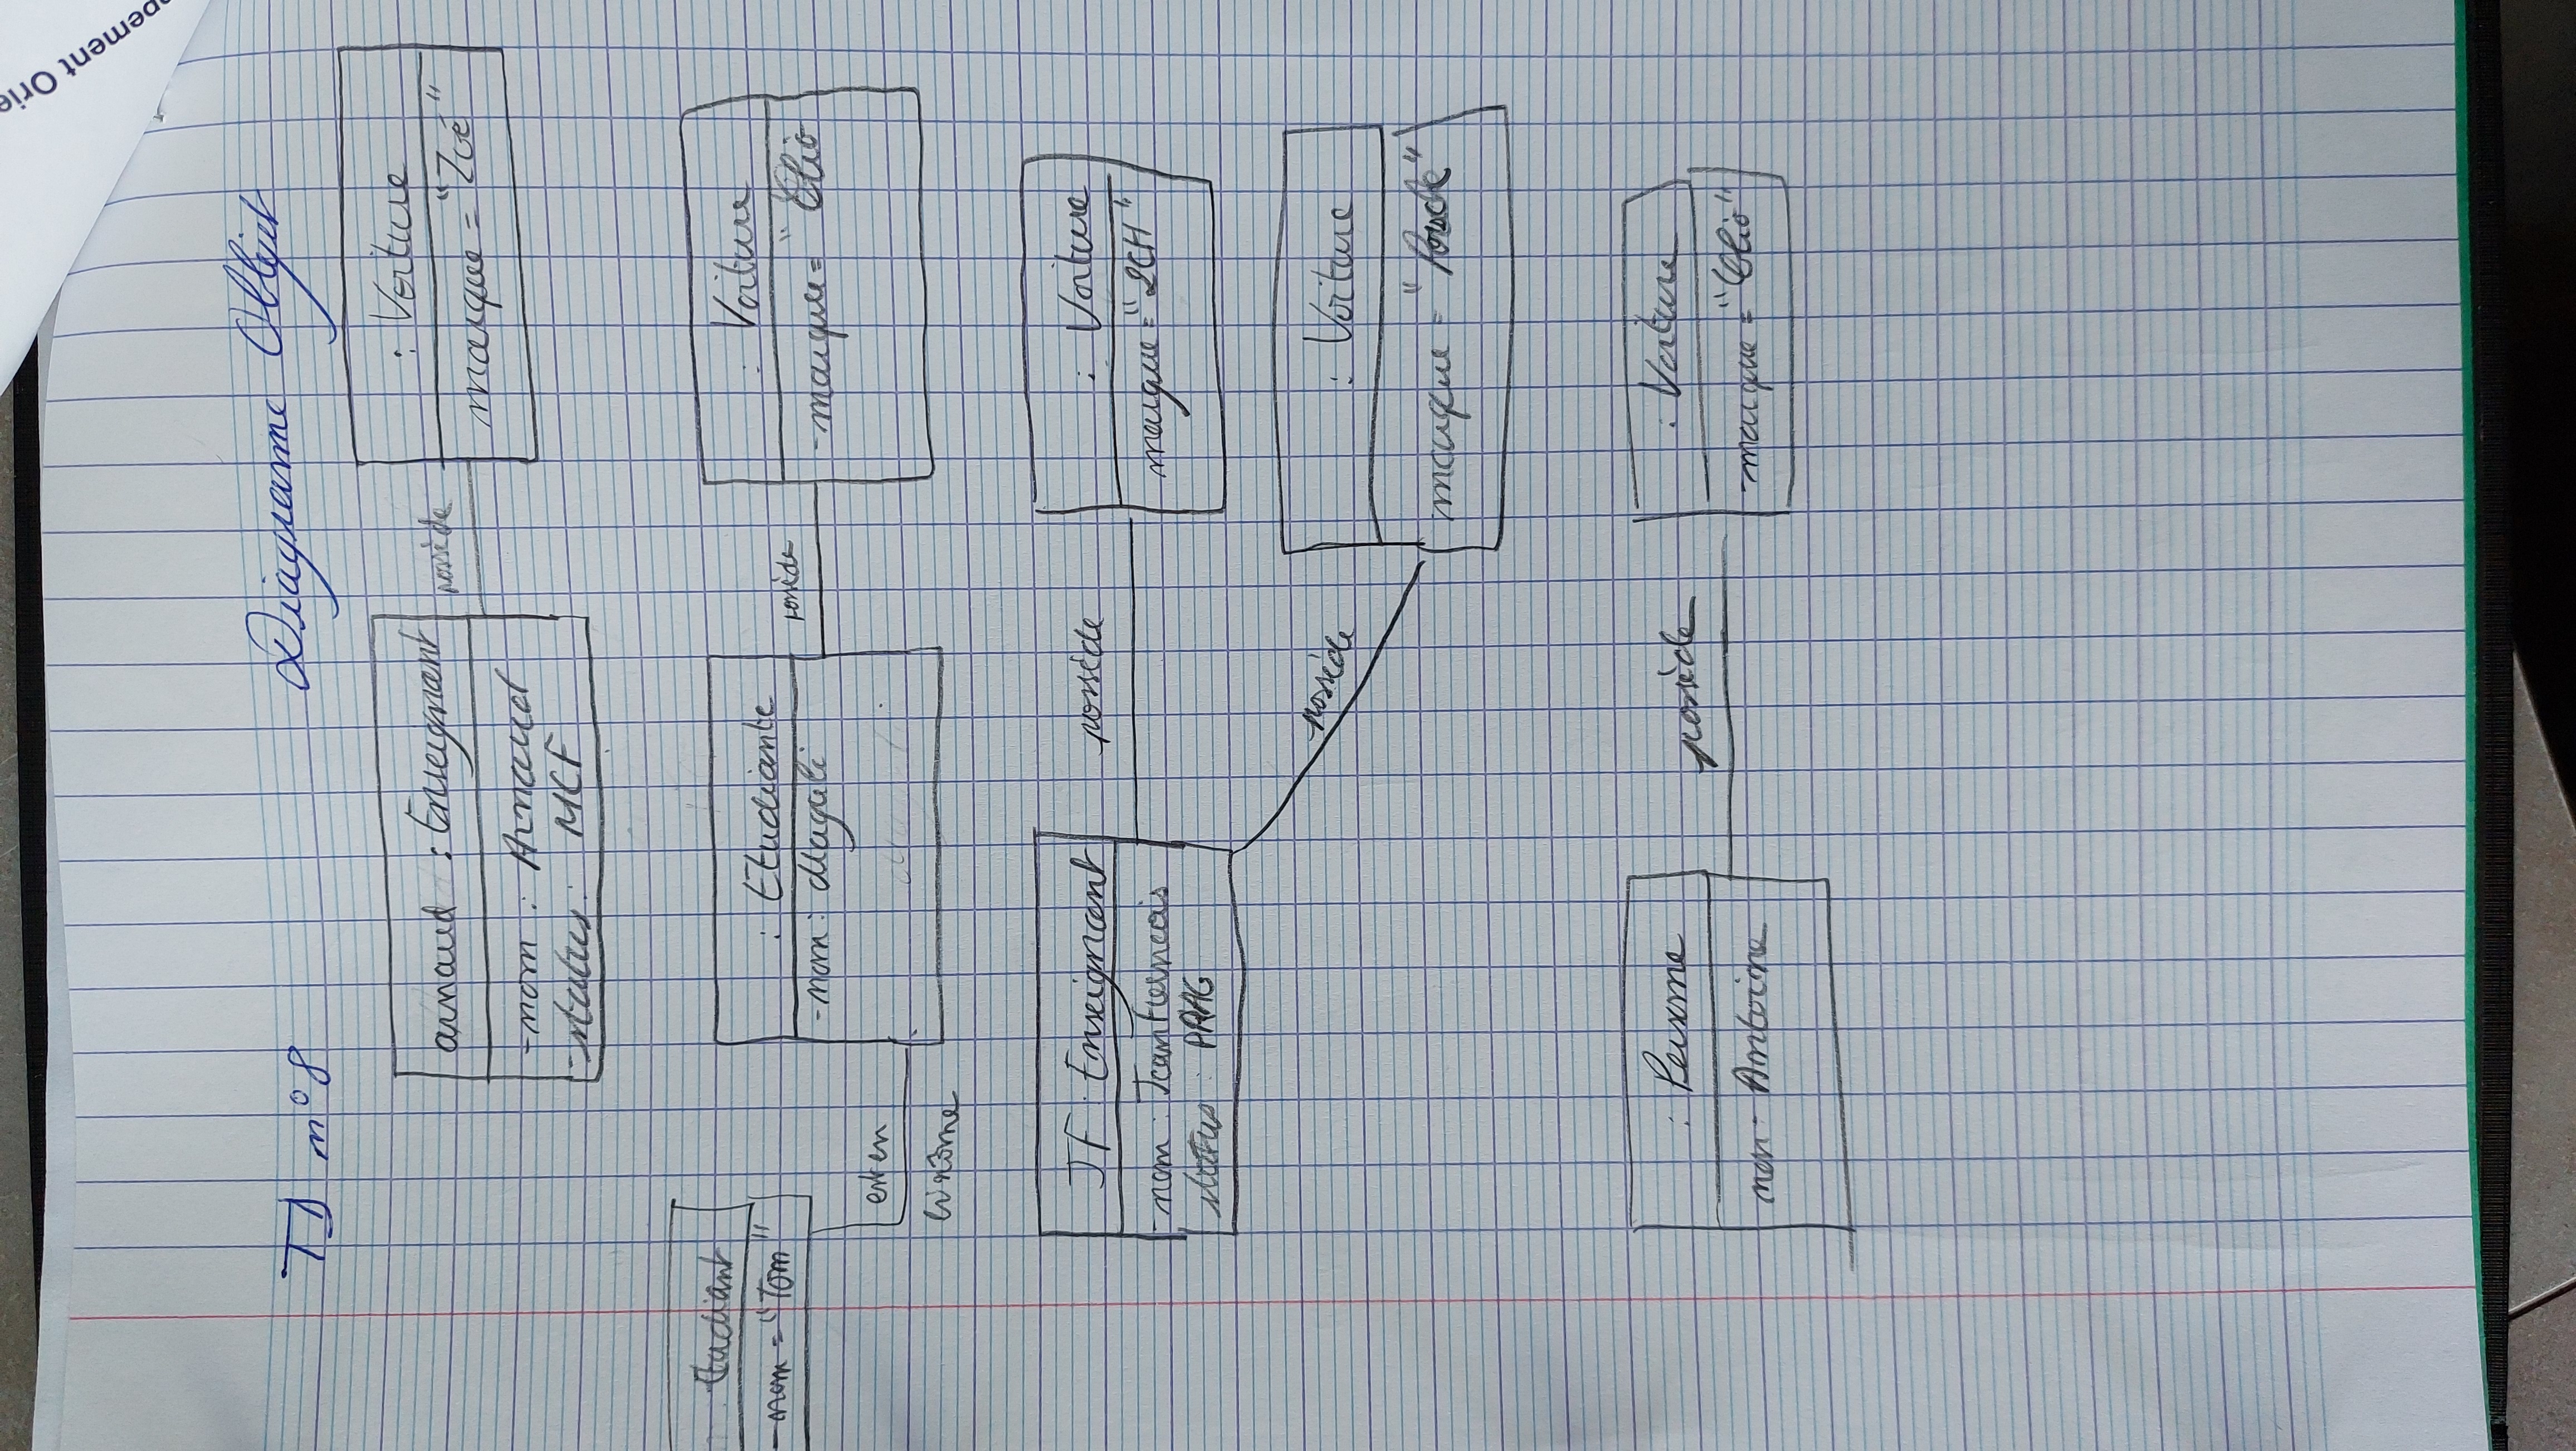 pement Orie
TD n°8
Diagramme Objet
arnaud : Enseignant
-nom : Arnaud
-status : MCF
possède
: Voiture
marque = "Zoé"
Etudiant
-nom = "Tom"
est en
binôme
: Etudiante
-nom : Magali
possède
: Voiture
-marque = "Clio
JF : Enseignant
-nom : JeanFrancois
status : PRAG
possède
: Voiture
marque = "2CH"
possède
: Voiture
marque = "Porsche"
: Personne
nom - Antoine
possède
: Voiture
-marque = "Clio"